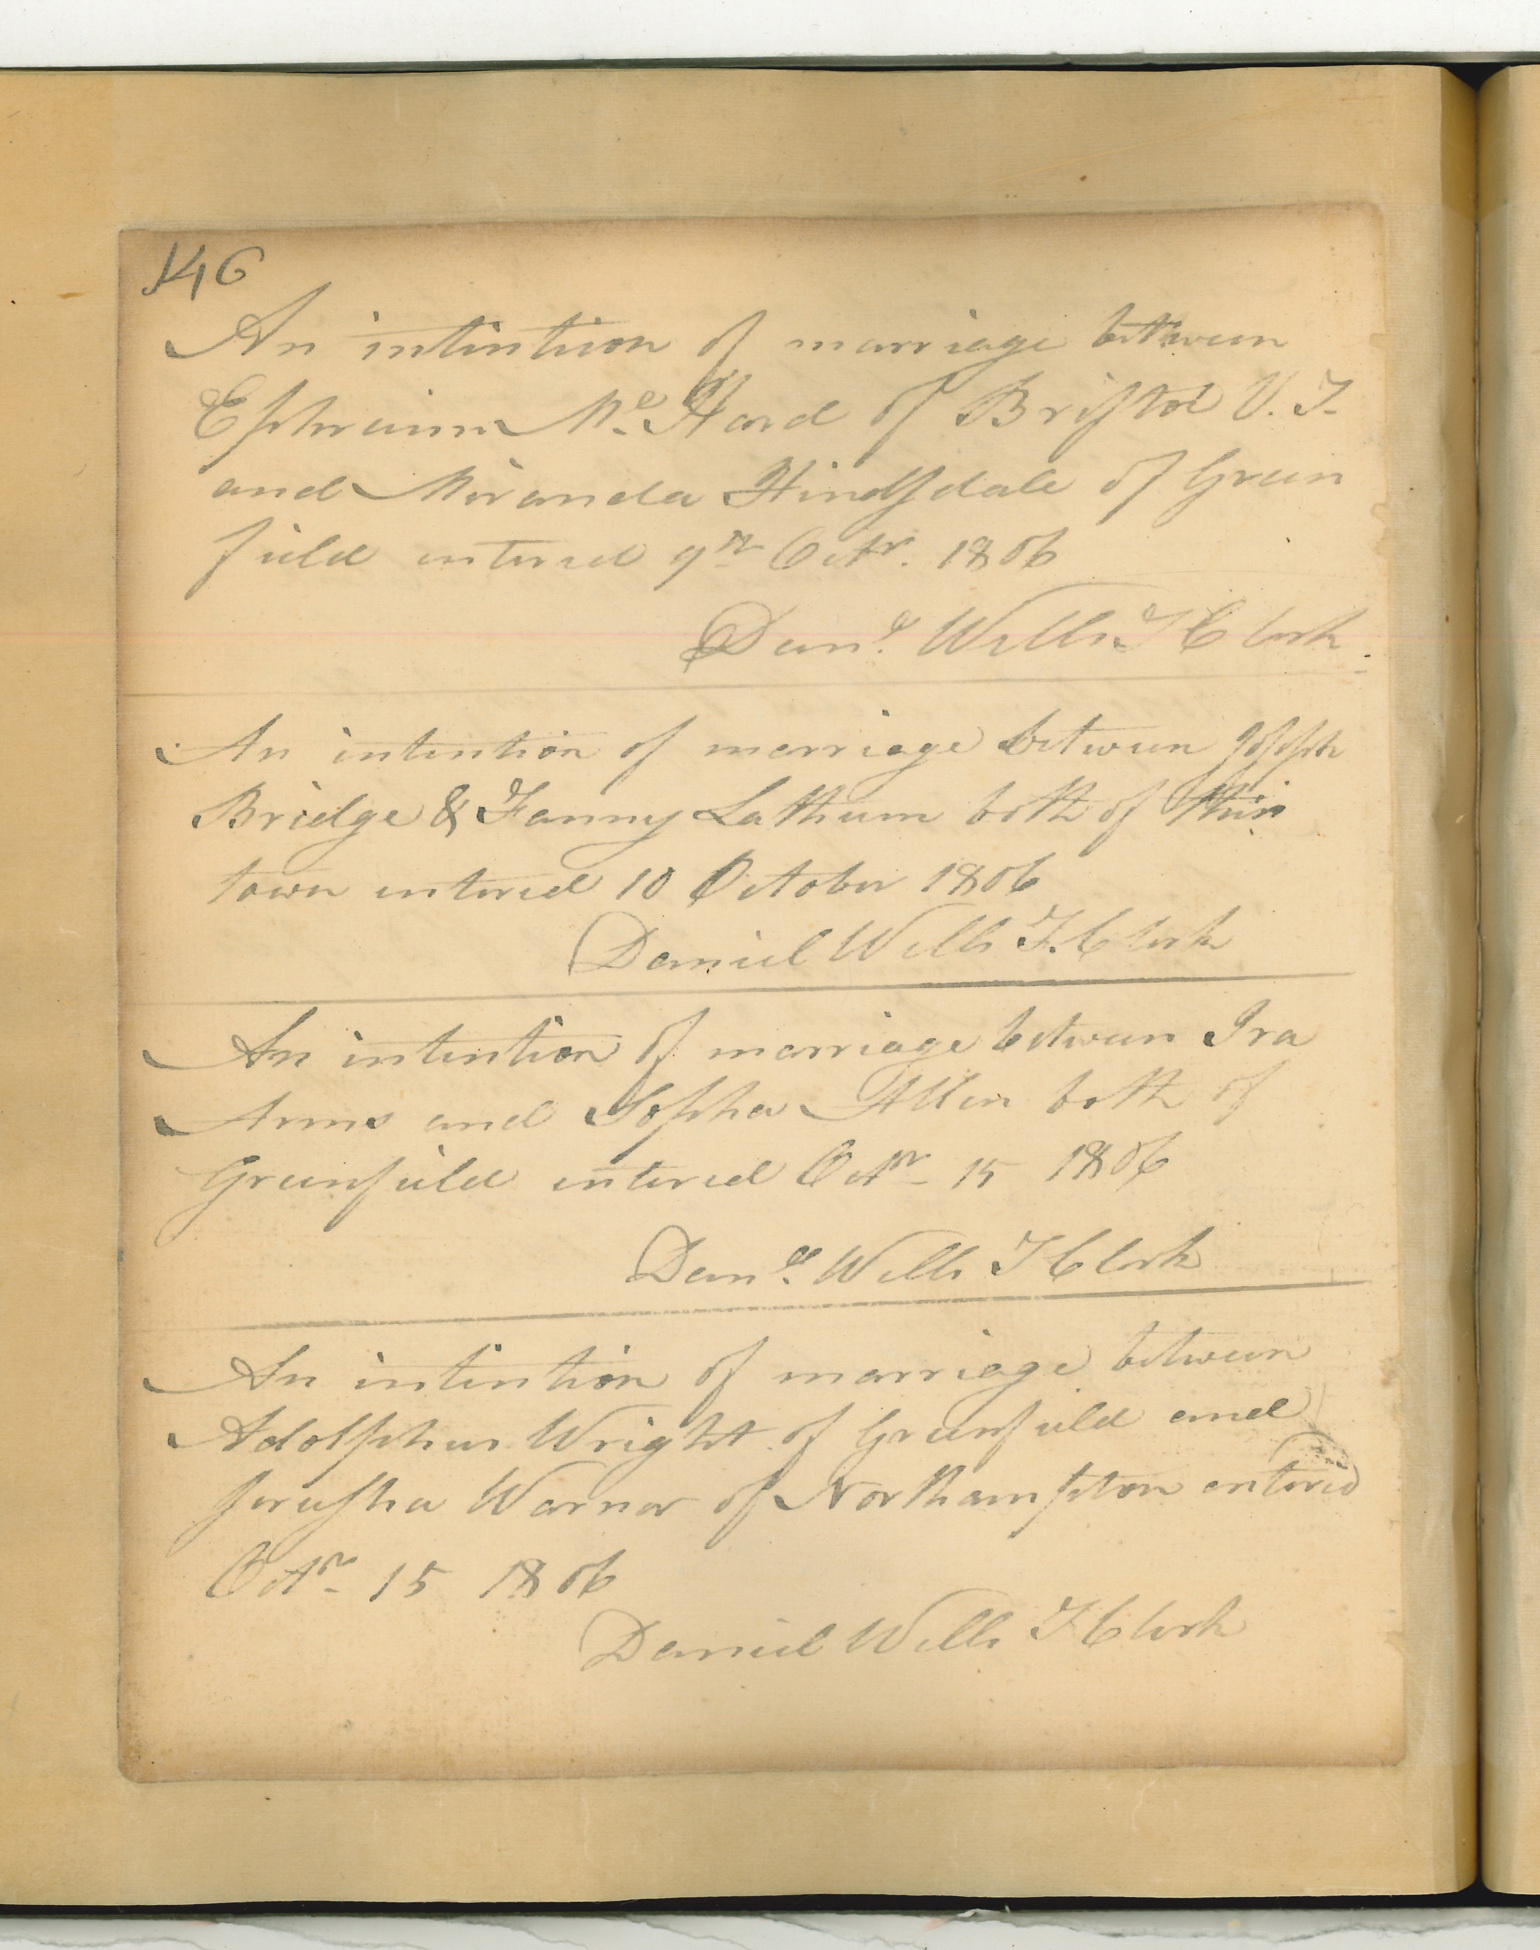 146
An intention of marriage between
Ephraim Mc. Hard of Bristol V. T.
and Miranda Hindsdale of Green
field entered 9th Octr. 1806
Danl. Wells T Clerk
An intention of marriage between Joseph
Bridge & Fanny Lathum both of this
town entered 10 October 1806
Daniel Wells T. Clerk
An intention of marriage between Ira
Arms and Sopha Allen both of
Greenfield entered Octr 15 1806
Danll. Wells T Clerk
An intention of marriage between
Adolphus Wright of Greenfield and
Jerusha Warner of Northampton entered
Octr 15 1806
Daniel Wells T Clerk